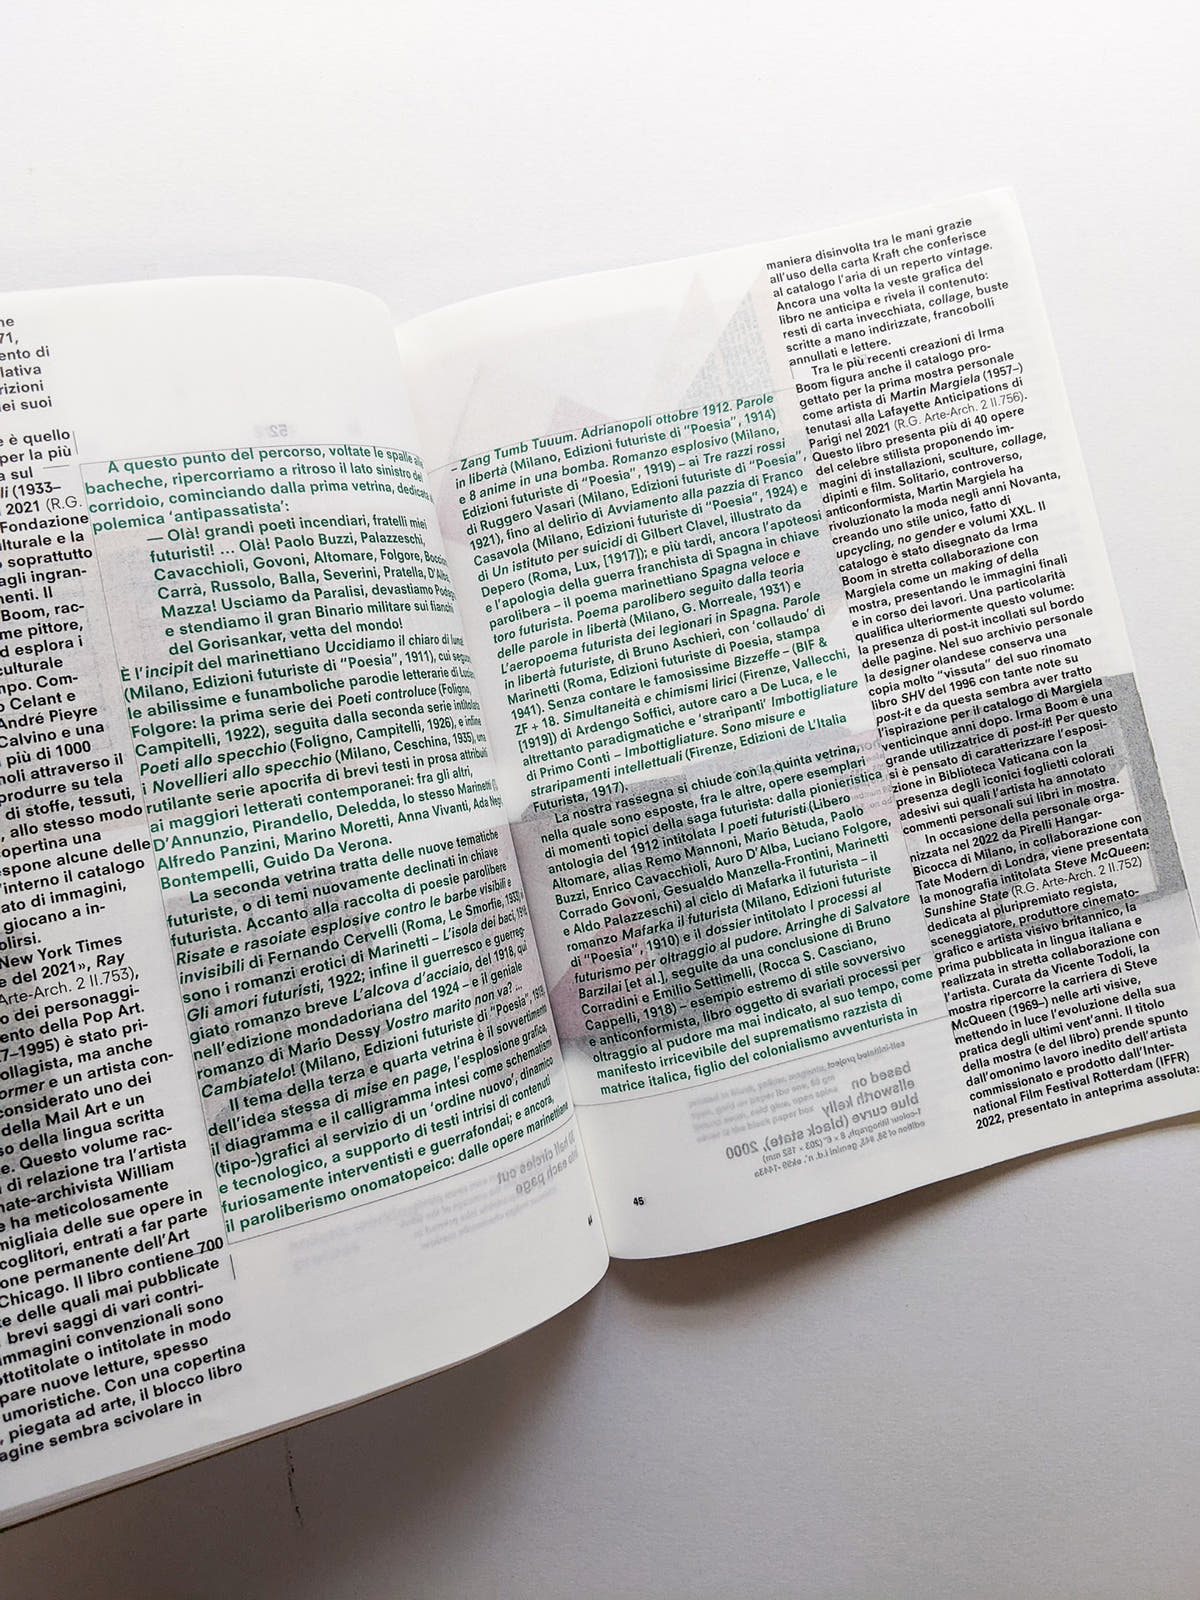 ne
71,
ento di
lativa
rizioni
dei suoi
e è quello
per la più
a sul
lli (1933–
2021 (R.G.
Fondazione
lturale e la
o soprattutto
agli ingran-
menti. Il
Boom, rac-
me pittore,
d esplora i
culturale
mpo. Com-
o Celant e
André Pieyre
Calvino e una
più di 1000
noli attraverso il
produrre su tela
di stoffe, tessuti,
, allo stesso modo
copertina una
espone alcune delle
l'interno il catalogo
ato di immagini,
giocano a in-
olirsi.
New York Times
e del 2021», Ray
Arte-Arch. 2 II.753),
o dei personaggi-
ento della Pop Art.
7–1995) è stato pri-
ollagista, ma anche
ormer e un artista con-
considerato uno dei
della Mail Art e un
so della lingua scritta
e. Questo volume rac-
di relazione tra l'artista
nate-archivista William
e ha meticolosamente
migliaia delle sue opere in
coglitori, entrati a far parte
one permanente dell'Art
Chicago. Il libro contiene 700
te delle quali mai pubblicate
brevi saggi di vari contri-
immagini convenzionali sono
ottotitolate o intitolate in modo
pare nuove letture, spesso
umoristiche. Con una copertina
, piegata ad arte, il blocco libro
agine sembra scivolare in
A questo punto del percorso, voltate le spalle alle
bacheche, ripercorriamo a ritroso il lato sinistro del
corridoio, cominciando dalla prima vetrina, dedicata
polemica ‘antipassatista’:
— Olà! grandi poeti incendiari, fratelli miei
futuristi! ... Olà! Paolo Buzzi, Palazzeschi,
Cavacchioli, Govoni, Altomare, Folgore, Boccioni,
Carrà, Russolo, Balla, Severini, Pratella, D'Alba,
Mazza! Usciamo da Paralisi, devastiamo Podagra
e stendiamo il gran Binario militare sui fianchi
del Gorisankar, vetta del mondo!
È l'incipit del marinettiano Uccidiamo il chiaro di luna!
(Milano, Edizioni futuriste di “Poesia”, 1911), cui seguono
le abilissime e funamboliche parodie letterarie di Luciano
Folgore: la prima serie dei Poeti controluce (Foligno,
Campitelli, 1922), seguita dalla seconda serie intitolata
Poeti allo specchio (Foligno, Campitelli, 1926), e infine
i Novellieri allo specchio (Milano, Ceschina, 1935), una
rutilante serie apocrifa di brevi testi in prosa attribuiti
ai maggiori letterati contemporanei: fra gli altri,
D'Annunzio, Pirandello, Deledda, lo stesso Marinetti (!),
Alfredo Panzini, Marino Moretti, Anna Vivanti, Ada Negri,
Bontempelli, Guido Da Verona.
La seconda vetrina tratta delle nuove tematiche
futuriste, o di temi nuovamente declinati in chiave
futurista. Accanto alla raccolta di poesie parolibere
Risate e rasoiate esplosive contro le barbe visibili e
invisibili di Fernando Cervelli (Roma, Le Smorfie, 1933), vi
sono i romanzi erotici di Marinetti – L'isola dei baci, 1918,
Gli amori futuristi, 1922; infine il guerresco e guerreg-
giato romanzo breve L'alcova d'acciaio, del 1918, qui
nell'edizione mondadoriana del 1924 – e il geniale
romanzo di Mario Dessy Vostro marito non va? ...
Cambiatelo! (Milano, Edizioni futuriste di “Poesia”, 1919).
Il tema della terza e quarta vetrina è il sovvertimento
dell'idea stessa di mise en page, l'esplosione grafica,
il diagramma e il calligramma intesi come schematismi
(tipo-)grafici al servizio di un ‘ordine nuovo’, dinamico
e tecnologico, a supporto di testi intrisi di contenuti
furiosamente interventisti e guerrafondai; e ancora,
il paroliberismo onomatopeico: dalle opere marinettiane
44
– Zang Tumb Tuuum. Adrianopoli ottobre 1912. Parole
in libertà (Milano, Edizioni futuriste di “Poesia”, 1914)
e 8 anime in una bomba. Romanzo esplosivo (Milano,
Edizioni futuriste di “Poesia”, 1919) – ai Tre razzi rossi
di Ruggero Vasari (Milano, Edizioni futuriste di “Poesia”,
1921), fino al delirio di Avviamento alla pazzia di Franco
Casavola (Milano, Edizioni futuriste di “Poesia”, 1924) e
di Un istituto per suicidi di Gilbert Clavel, illustrato da
Depero (Roma, Lux, [1917]); e più tardi, ancora l'apoteosi
e l'apologia della guerra franchista di Spagna in chiave
parolibera – il poema marinettiano Spagna veloce e
toro futurista. Poema parolibero seguito dalla teoria
delle parole in libertà (Milano, G. Morreale, 1931) e
L'aeropoema futurista dei legionari in Spagna. Parole
in libertà futuriste, di Bruno Aschieri, con ‘collaudo’ di
Marinetti (Roma, Edizioni futuriste di Poesia, stampa
1941). Senza contare le famosissime Bizzeffe – (BIF &
ZF + 18. Simultaneità e chimismi lirici (Firenze, Vallecchi,
[1919]) di Ardengo Soffici, autore caro a De Luca, e le
altrettanto paradigmatiche e ‘straripanti’ Imbottigliature
di Primo Conti – Imbottigliature. Sono misure e
straripamenti intellettuali (Firenze, Edizioni de L'Italia
Futurista, 1917).
La nostra rassegna si chiude con la quinta vetrina,
nella quale sono esposte, fra le altre, opere esemplari
di momenti topici della saga futurista: dalla pionieristica
antologia del 1912 intitolata I poeti futuristi (Libero
Altomare, alias Remo Mannoni, Mario Bètuda, Paolo
Buzzi, Enrico Cavacchioli, Auro D'Alba, Luciano Folgore,
Corrado Govoni, Gesualdo Manzella-Frontini, Marinetti
e Aldo Palazzeschi) al ciclo di Mafarka il futurista – il
romanzo Mafarka il futurista (Milano, Edizioni futuriste
di “Poesia”, 1910) e il dossier intitolato I processi al
futurismo per oltraggio al pudore. Arringhe di Salvatore
Barzilai [et al.], seguite da una conclusione di Bruno
Corradini e Emilio Settimelli, (Rocca S. Casciano,
Cappelli, 1918) – esempio estremo di stile sovversivo
e anticonformista, libro oggetto di svariati processi per
oltraggio al pudore ma mai indicato, al suo tempo, come
manifesto irricevibile del suprematismo razzista di
matrice italica, figlio del colonialismo avventurista in
45
maniera disinvolta tra le mani grazie
all'uso della carta Kraft che conferisce
al catalogo l'aria di un reperto vintage.
Ancora una volta la veste grafica del
libro ne anticipa e rivela il contenuto:
resti di carta invecchiata, collage, buste
scritte a mano indirizzate, francobolli
annullati e lettere.
Tra le più recenti creazioni di Irma
Boom figura anche il catalogo pro-
gettato per la prima mostra personale
come artista di Martin Margiela (1957–)
tenutasi alla Lafayette Anticipations di
Parigi nel 2021 (R.G. Arte-Arch. 2 II.756).
Questo libro presenta più di 40 opere
del celebre stilista proponendo im-
magini di installazioni, sculture, collage,
dipinti e film. Solitario, controverso,
anticonformista, Martin Margiela ha
rivoluzionato la moda negli anni Novanta,
creando uno stile unico, fatto di
upcycling, no gender e volumi XXL. Il
catalogo è stato disegnato da Irma
Boom in stretta collaborazione con
Margiela come un making of della
mostra, presentando le immagini finali
e in corso dei lavori. Una particolarità
qualifica ulteriormente questo volume:
la presenza di post-it incollati sul bordo
delle pagine. Nel suo archivio personale
la designer olandese conserva una
copia molto “vissuta” del suo rinomato
libro SHV del 1996 con tante note su
post-it e da questa sembra aver tratto
l'ispirazione per il catalogo di Margiela
venticinque anni dopo. Irma Boom è una
grande utilizzatrice di post-it! Per questo
si è pensato di caratterizzare l'esposi-
zione in Biblioteca Vaticana con la
presenza degli iconici foglietti colorati
adesivi sui quali l'artista ha annotato
commenti personali sui libri in mostra.
In occasione della personale orga-
nizzata nel 2022 da Pirelli Hangar-
Bicocca di Milano, in collaborazione con
Tate Modern di Londra, viene presentata
la monografia intitolata Steve McQueen:
Sunshine State (R.G. Arte-Arch. 2 II.752)
dedicata al pluripremiato regista,
sceneggiatore, produttore cinemato-
grafico e artista visivo britannico, la
prima pubblicata in lingua italiana e
realizzata in stretta collaborazione con
l'artista. Curata da Vicente Todolì, la
mostra ripercorre la carriera di Steve
McQueen (1969–) nelle arti visive,
mettendo in luce l'evoluzione della sua
pratica degli ultimi vent'anni. Il titolo
della mostra (e del libro) prende spunto
dall'omonimo lavoro inedito dell'artista
commissionato e prodotto dall'Inter-
national Film Festival Rotterdam (IFFR)
2022, presentato in anteprima assoluta: